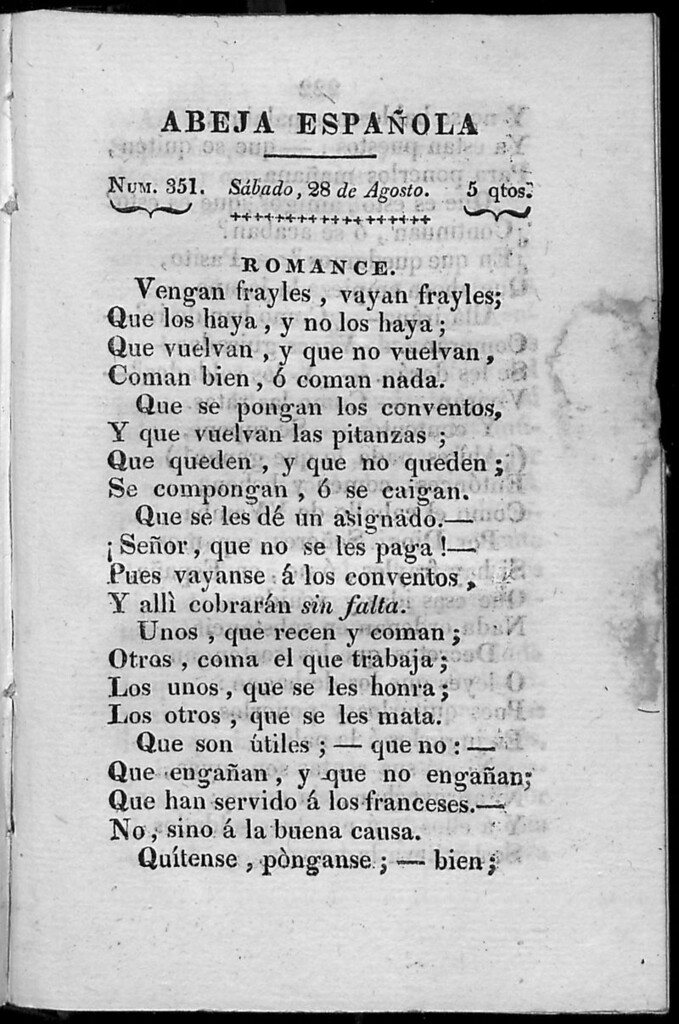 ABEJA ESPAÑOLA
NUM. 351. Sábado, 28 de Agosto. 5 qtos.
ROMANCE.
Vengan frayles, vayan frayles;
Que los haya, y no los haya;
Que vuelvan, y que no vuelvan,
Coman bien, ó coman nada.
Que se pongan los conventos,
Y que vuelvan las pitanzas;
Que queden, y que no queden;
Se compongan, ó se caigan.
Que se les dé un asignado.—
¡Señor, que no se les paga!—
Pues vayanse á los conventos,
Y allì cobrarán sin falta.
Unos, que recen y coman;
Otros, coma el que trabaja;
Los unos, que se les honra;
Los otros, que se les mata.
Que son útiles; — que no: —
Que engañan, y que no engañan;
Que han servido á los franceses.—
No, sino á la buena causa.
Quítense, pònganse; — bien;